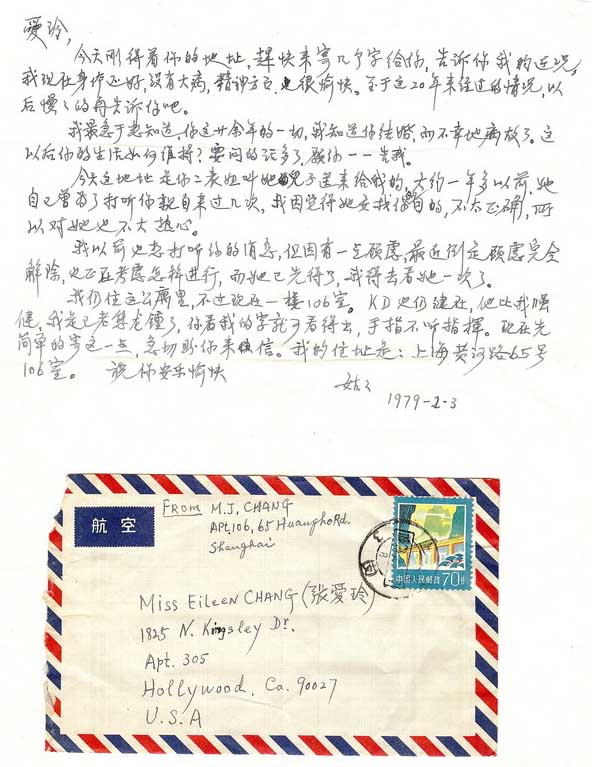 爱玲，
今天刚得着你的地址，赶快来寄几个字给你，告诉你我的近况，
我现在身体还好，没有大病，精神方面也很愉快。至于这20年来经过的情况，以
后慢慢的再告诉你吧。
我最急于想知道，你这廿余年的一切，我知道你结婚，而不幸地病故了。这
以后你的生活如何维持？要问的话多了，愿你一一告我。
今天这地址是你二表姐叫她兒子送来给我的，大约一年多以前，她
自己曾为了打听你就自来过几次，我因觉得她找你目的，不大正确，所
以对她也不大热心。
我以前也想打听你的消息，但因有一点顾虑，最近倒是顾虑完全
解除，也正在考虑怎样进行，而她已先得了，我得去看她一次了。
我仍住这公寓里，不过现在一楼106室。KD也仍健在，他比我强
健，我是已老态龙锺了，你看我的字就可看得出，手指不听指挥。现在先
简单的寄这一点，急切盼你来信。我的住址是：上海黄河路65号
106室。 祝你安乐愉快
姑姑
1979-2-3
航空
From M.J. CHANG
Apt.106, 65 Huangho Rd.
Shanghai
中国人民邮政 70分
Miss Eileen CHANG (張愛玲)
1825 N. Kingsley Dr.
Apt. 305
Hollywood, Ca. 90027
U.S.A